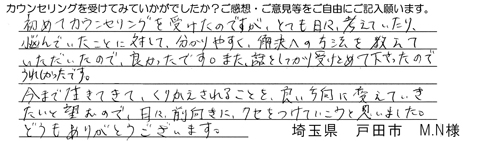 カウンセリングを受けてみていかがでしたか？ご感想・ご意見等をご自由にご記入願います。
初めてカウンセリングを受けたのですが、とても日々、考えていたり、
悩んでいたことに対して、分かりやすく、解決への方法を教えて
いただいたので、良かったです。また、話をしっかり受けとめて下さったので
うれしかったです。
今まで生きてきて、くりかえされることを、良い方向に変えていき
たいと望むので、日々、前向きに、クセをつけていこうと思いました。
どうもありがとうございます。
埼玉県 戸田市 M.N様